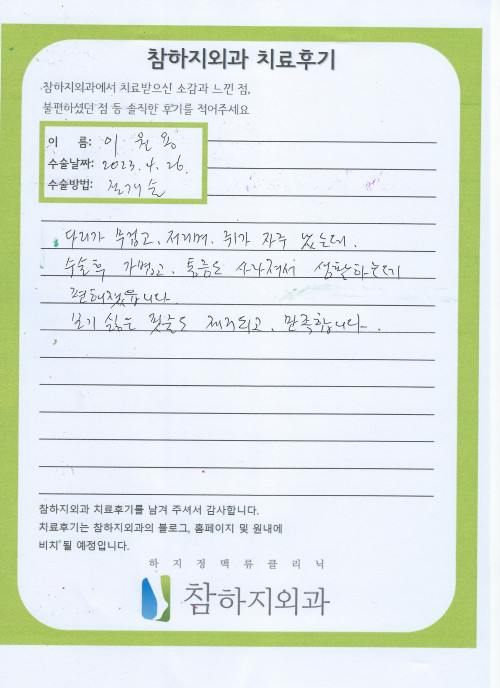 참하지외과 치료후기
참하지외과에서 치료받으신 소감과 느낀 점,
불편하셨던 점 등 솔직한 후기를 적어주세요
이 름: 이 원 용
수술날짜: 2023. 4. 26.
수술방법: 절개술
다리가 무겁고, 저리며, 쥐가 자주 났는데.
수술후 가볍고, 통증도 사라져서 생활하는데
편해졌읍니다
보기 싫은 핏줄도 제거되고, 만족합니다.
참하지외과 치료후기를 남겨 주셔서 감사합니다.
치료후기는 참하지외과의 블로그, 홈페이지 및 원내에
비치 될 예정입니다.
하 지 정 맥 류 클 리 닉
참하지외과